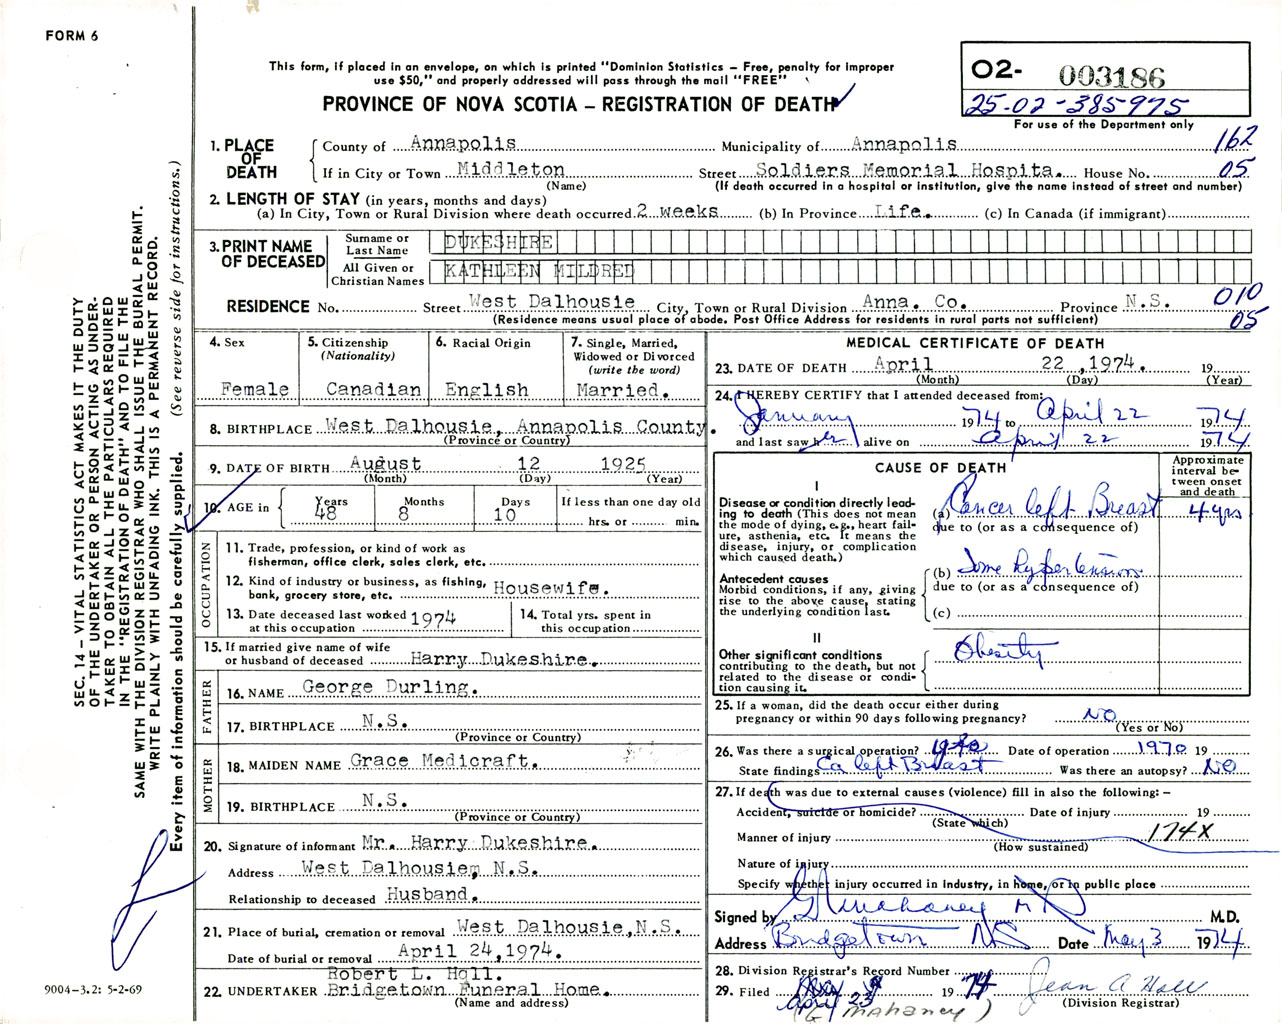 FORM 6
This form, if placed in an envelope, on which is printed "Dominion Statistics – Free, penalty for improper
use $50," and properly addressed will pass through the mail "FREE"
PROVINCE OF NOVA SCOTIA – REGISTRATION OF DEATH
02- 003186
25-02-385975
For use of the Department only
1. PLACE OF DEATH
County of Annapolis Municipality of Annapolis 162
If in City or Town Middleton Street Soldiers Memorial Hospita. House No. 05
(Name) (If death occurred in a hospital or institution, give the name instead of street and number)
2. LENGTH OF STAY (in years, months and days)
(a) In City, Town or Rural Division where death occurred 2 weeks (b) In Province Life. (c) In Canada (if immigrant)
3. PRINT NAME OF DECEASED
Surname or Last Name DUKESHIRE
All Given or Christian Names KATHLEEN MILDRED
RESIDENCE No. Street West Dalhousie City, Town or Rural Division Anna. Co. Province N.S. 010
(Residence means usual place of abode. Post Office Address for residents in rural parts not sufficient) 05
4. Sex Female
5. Citizenship (Nationality) Canadian
6. Racial Origin English
7. Single, Married, Widowed or Divorced (write the word) Married.
8. BIRTHPLACE West Dalhousie, Annapolis County.
(Province or Country)
9. DATE OF BIRTH August 12 1925
(Month) (Day) (Year)
10. AGE in Years 48 Months 8 Days 10 If less than one day old hrs. or min.
OCCUPATION
11. Trade, profession, or kind of work as
fisherman, office clerk, sales clerk, etc.
12. Kind of industry or business, as fishing,
bank, grocery store, etc. Housewife.
13. Date deceased last worked
at this occupation 1974
14. Total yrs. spent in
this occupation
15. If married give name of wife
or husband of deceased Harry Dukeshire.
FATHER
16. NAME George Durling.
17. BIRTHPLACE N.S.
(Province or Country)
MOTHER
18. MAIDEN NAME Grace Medicraft.
19. BIRTHPLACE N.S.
(Province or Country)
20. Signature of informant Mr. Harry Dukeshire.
Address West Dalhousie, N.S.
Relationship to deceased Husband.
21. Place of burial, cremation or removal West Dalhousie, N.S.
Date of burial or removal April 24, 1974.
Robert L. Hall.
22. UNDERTAKER Bridgetown Funeral Home.
(Name and address)
MEDICAL CERTIFICATE OF DEATH
23. DATE OF DEATH April 22, 1974. 19
(Month) (Day) (Year)
24. I HEREBY CERTIFY that I attended deceased from:
January 1974 to April 22 1974
and last saw her alive on April 22 1974
CAUSE OF DEATH
Approximate interval between onset and death
I
Disease or condition directly leading to death (This does not
mean the mode of dying, e.g., heart failure, asthenia, etc. It means the
disease, injury, or complication
which caused death.)
(a) Cancer left Breast 4 yrs
due to (or as a consequence of)
Antecedent causes
Morbid conditions, if any, giving
rise to the above cause, stating
the underlying condition last.
(b) Some hypertension
due to (or as a consequence of)
(c)
II
Other significant conditions
contributing to the death, but not
related to the disease or condition causing it.
Obesity
25. If a woman, did the death occur either during
pregnancy or within 90 days following pregnancy? NO
(Yes or No)
26. Was there a surgical operation? Date of operation 1970 19
State findings Ca left Breast Was there an autopsy? NO
27. If death was due to external causes (violence) fill in also the following: –
Accident, suicide or homicide? Date of injury 19
(State which)
Manner of injury 174X
(How sustained)
Nature of injury
Specify whether injury occurred in industry, in home, or in public place
Signed by G Mahaney MD M.D.
Address Bridgetown NS Date May 3 1974
28. Division Registrar's Record Number
29. Filed April 23 1974 Jean A Hall
(Division Registrar)
(G Mahaney)
SEC. 14 – VITAL STATISTICS ACT MAKES IT THE DUTY
OF THE UNDERTAKER OR PERSON ACTING AS UNDER-
TAKER TO OBTAIN ALL THE PARTICULARS REQUIRED
IN THE "REGISTRATION OF DEATH" AND TO FILE THE
SAME WITH THE DIVISION REGISTRAR WHO SHALL ISSUE THE BURIAL PERMIT.
WRITE PLAINLY WITH UNFADING INK. THIS IS A PERMANENT RECORD.
Every item of information should be carefully supplied. (See reverse side for instructions.)
9004-3.2: 5-2-69